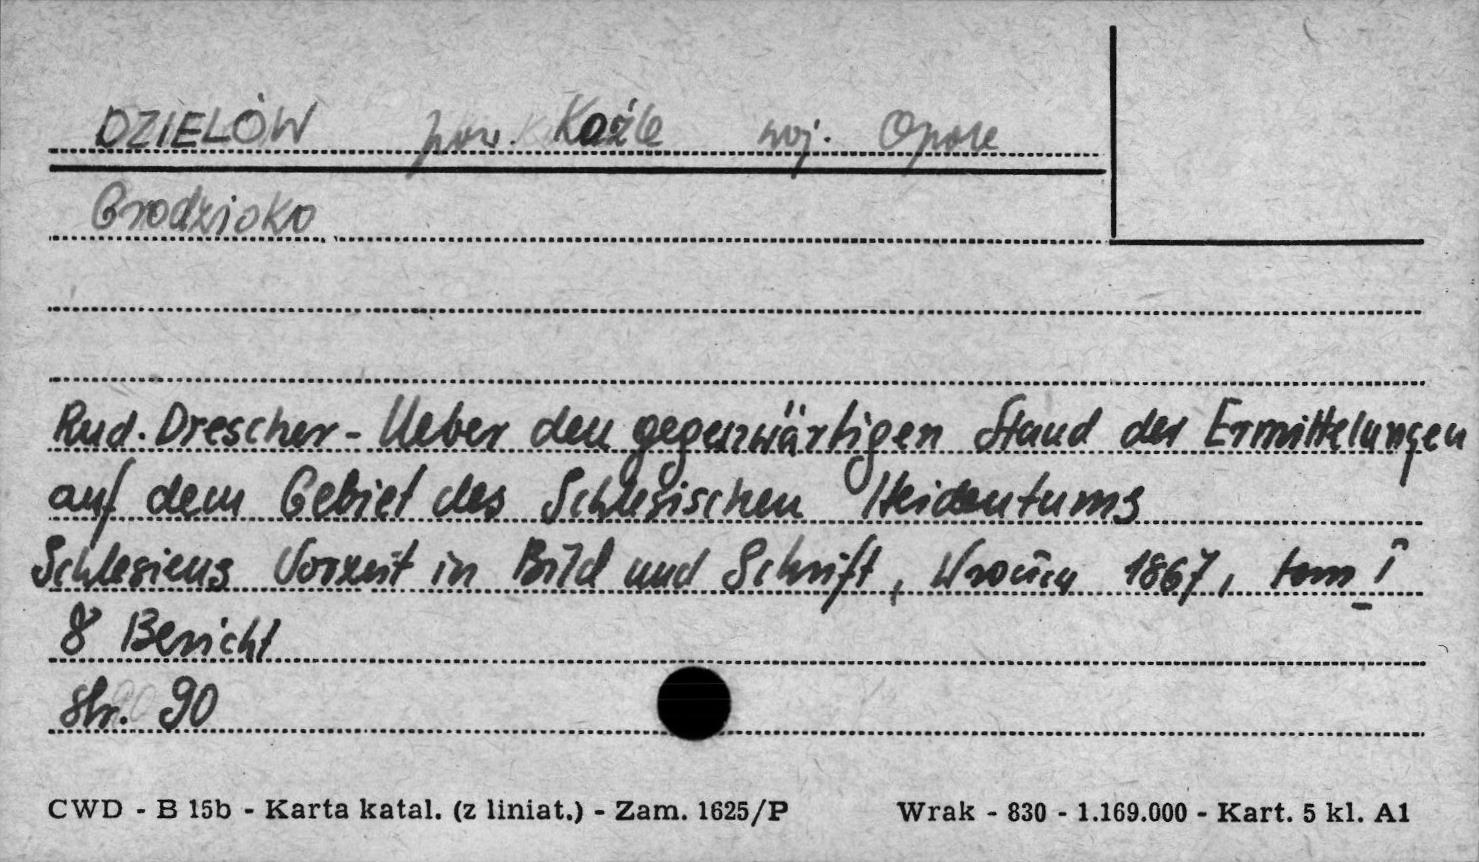 DZIELÓW pow. Koźle woj. Opole
Grodzisko
Rud. Drescher - Ueber den gegenwärtigen Stand der Ermittelungen
auf dem Gebiet des Schlesischen Heidentums
Schlesiens Vorzeit in Bild und Schrift, 1867, tom I
8 Bericht
str. 90
CWD - B 15b - Karta katal. (z liniat.) - Zam. 1625/P Wrak - 830 - 1.169.000 - Kart. 5 kl. A1